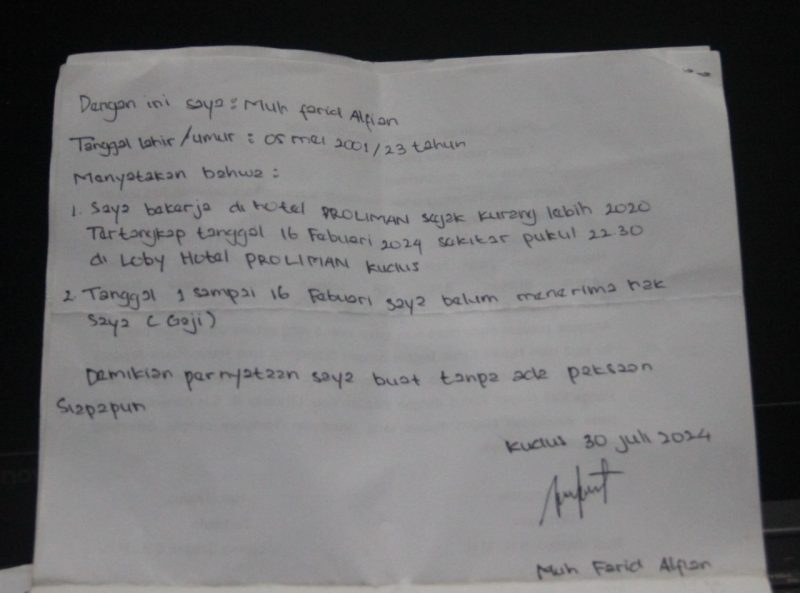 Dengan ini saya : Muh Farid Alfian
Tanggal lahir / umur : 05 mei 2001 / 23 tahun
Menyatakan bahwa :
1. Saya bekerja di hotel PROLIMAN sejak kurang lebih 2020
Tertangkap tanggal 16 Febuari 2024 sekitar pukul 22.30
di Loby Hotel PROLIMAN Kudus
2. Tanggal 1 sampai 16 Febuari saya belum menerima hak
saya ( Gaji )
Demikian pernyataan saya buat tanpa ada paksaan
Siapapun
Kudus 30 juli 2024
Muh Farid Alfian